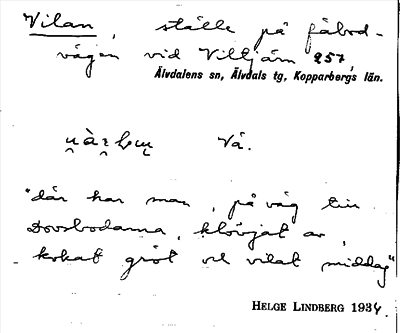 Vilan, ställe på fäbod-
vägen vid Villjärn 257,
Älvdalens sn, Älvdals tg, Kopparbergs län.
Vå.
"där har man, på väg till
Dovsbodarna, klövjat av,
kokat gröt och vilat middag"
HELGE LINDBERG 1934.